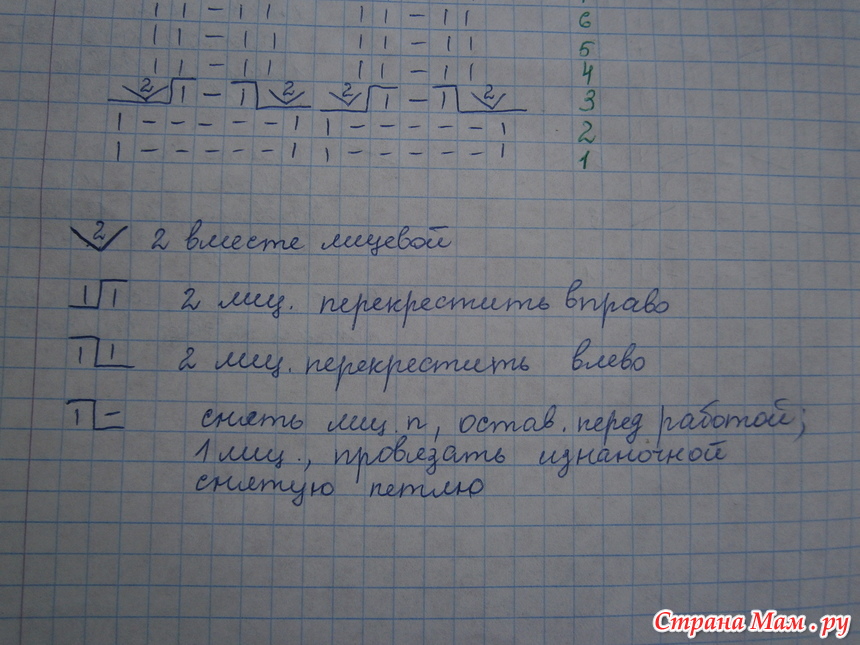 | | – | | | | – | | 6
| | – | | | | – | | 5
| | – | | | | – | | 4
2 | – | 2 2 | – | 2 3
| – – – – – | | – – – – – | 2
| – – – – – | | – – – – – | 1
2 2 вместе лицевой
| | 2 лиц. перекрестить вправо
| | 2 лиц. перекрестить влево
| – снять лиц. п, остав. перед работой;
1 лиц., провязать изнаночной
снятую петлю
Страна Мам.ру